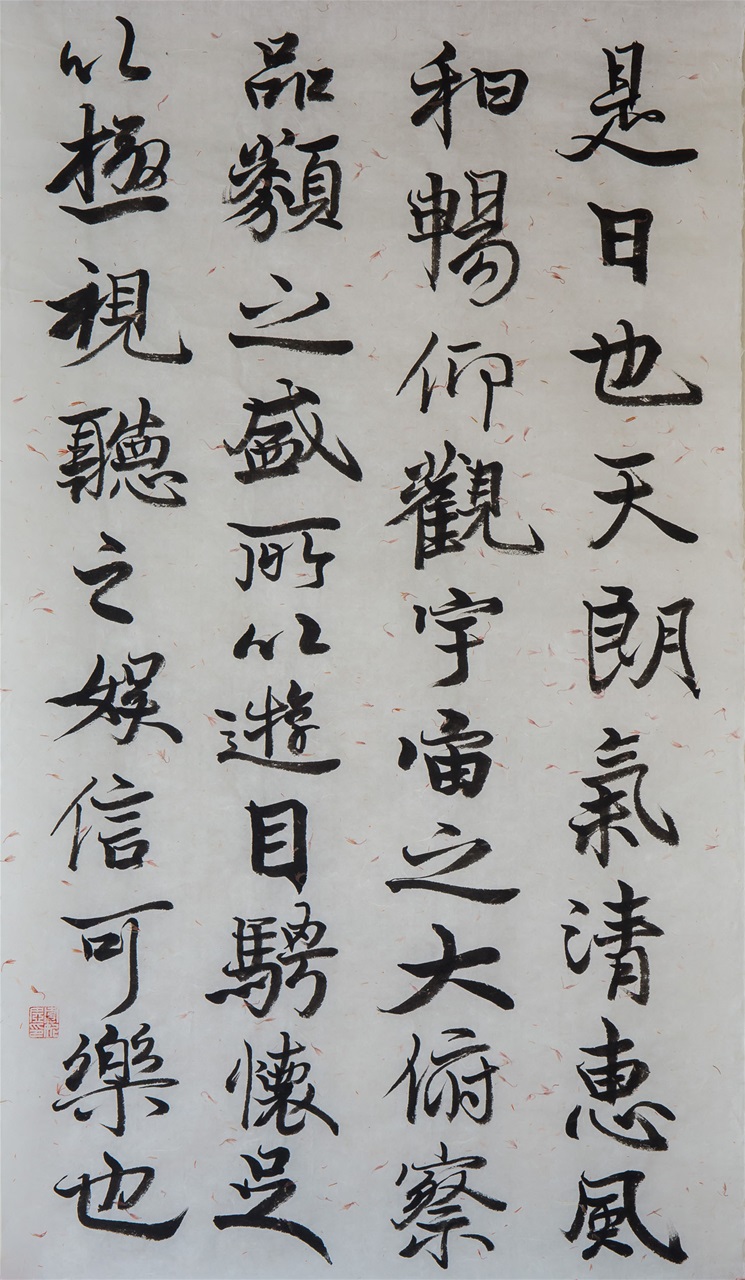 是日也天朗氣清惠風
和暢仰觀宇宙之大俯察
品類之盛所以遊目騁懷足
以極視聽之娛信可樂也